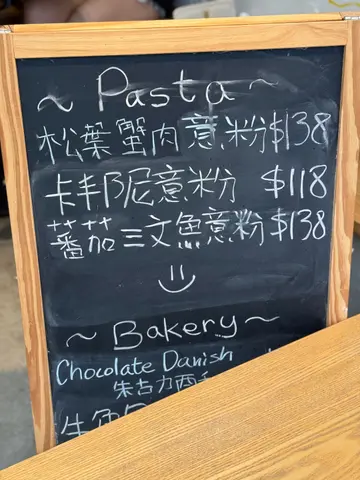 ~ Pasta ~
松葉蟹肉意粉$138
卡邦尼意粉 $118
蕃茄三文魚意粉$138
~ Bakery ~
Chocolate Danish
朱古力西
牛角